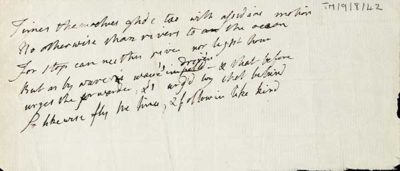 TM/9/8/42
Times themselves glide too with assiduous motion
No otherwise than rivers to an the ocean
For stop can neither river nor light hour
But as by wave wave's impell'd driven & that before
urges the forwarder, & urg'd by that behind
So likewise fly the times, & follow in like kind